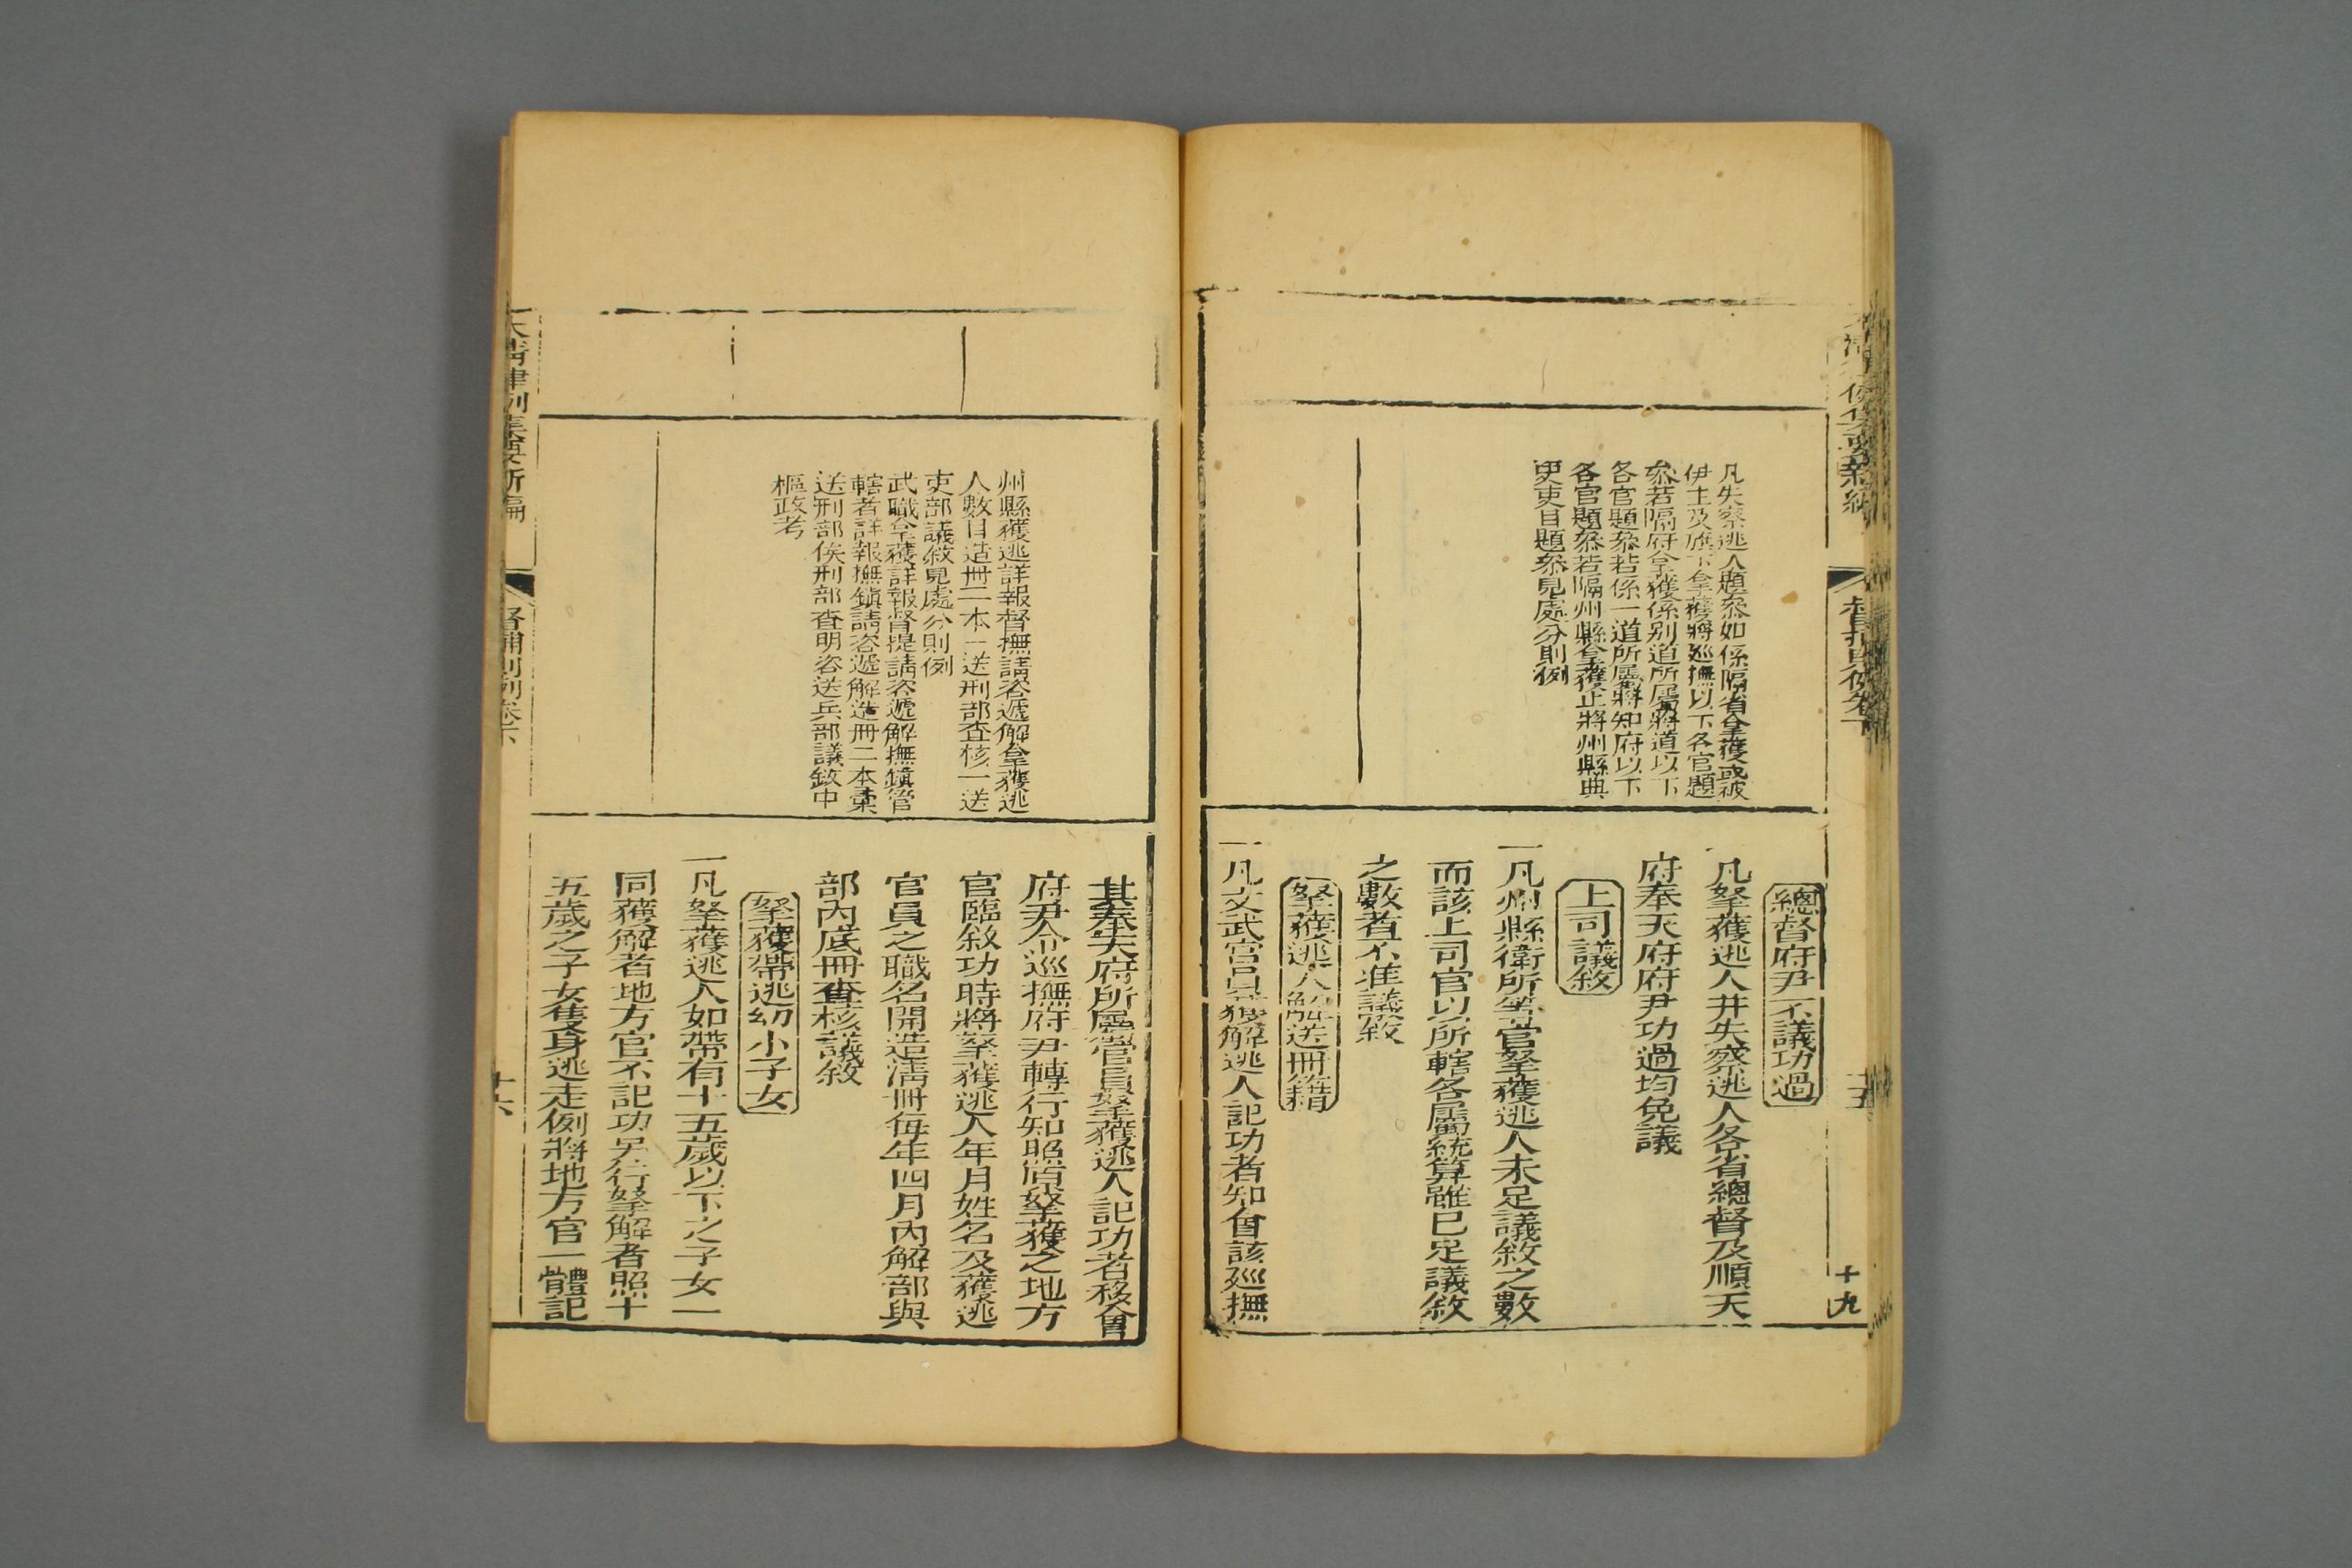 督捕則例卷下
十九
凡失察逃人題叅如係隔省拿獲或被
伊主及旗下拿獲將廵撫以下各官題
叅若隔府拿獲係别道所屬將道以下
各官題叅若係一道所屬將知府以下
各官題叅若隔州縣拿獲止將州縣典
吏吏目題叅見處分則例
總督府尹不議功過
一凡拏獲逃人并失察逃人各省總督及順天
府奉天府府尹功過均免議
上司議敘
一凡州縣衛所等官拏獲逃人未足議敘之數
而該上司官以所轄各屬統算雖已足議敘
之數者不准議敘
拏獲逃人解送冊籍
一凡文武官員獲解逃人記功者知會該廵撫
州縣獲逃詳報督撫請咨遞解拿獲逃
人數目造冊二本一送刑部查核一送
吏部議敘見處分則例
武職拿獲詳報督提請咨遞解撫鎮管
轄者詳報撫鎮請咨遞解造冊二本彙
送刑部俟刑部查明咨送兵部議敘中
樞政考
其奉天府所屬官員拏獲逃人記功者移會
府尹令巡撫府尹轉行知照原拏獲之地方
官臨敘功時將拏獲逃人年月姓名及獲逃
官員之職名開造淸冊每年四月內解部與
部內底冊查核議敘
拏獲帶逃幼小子女
一凡拏獲逃人如帶有十五歲以下之子女一
同獲解者地方官不記功另行拏解者照十
五歲之子女隻身逃走例將地方官一體記
大清律例集要新編
督捕則例卷下
十六